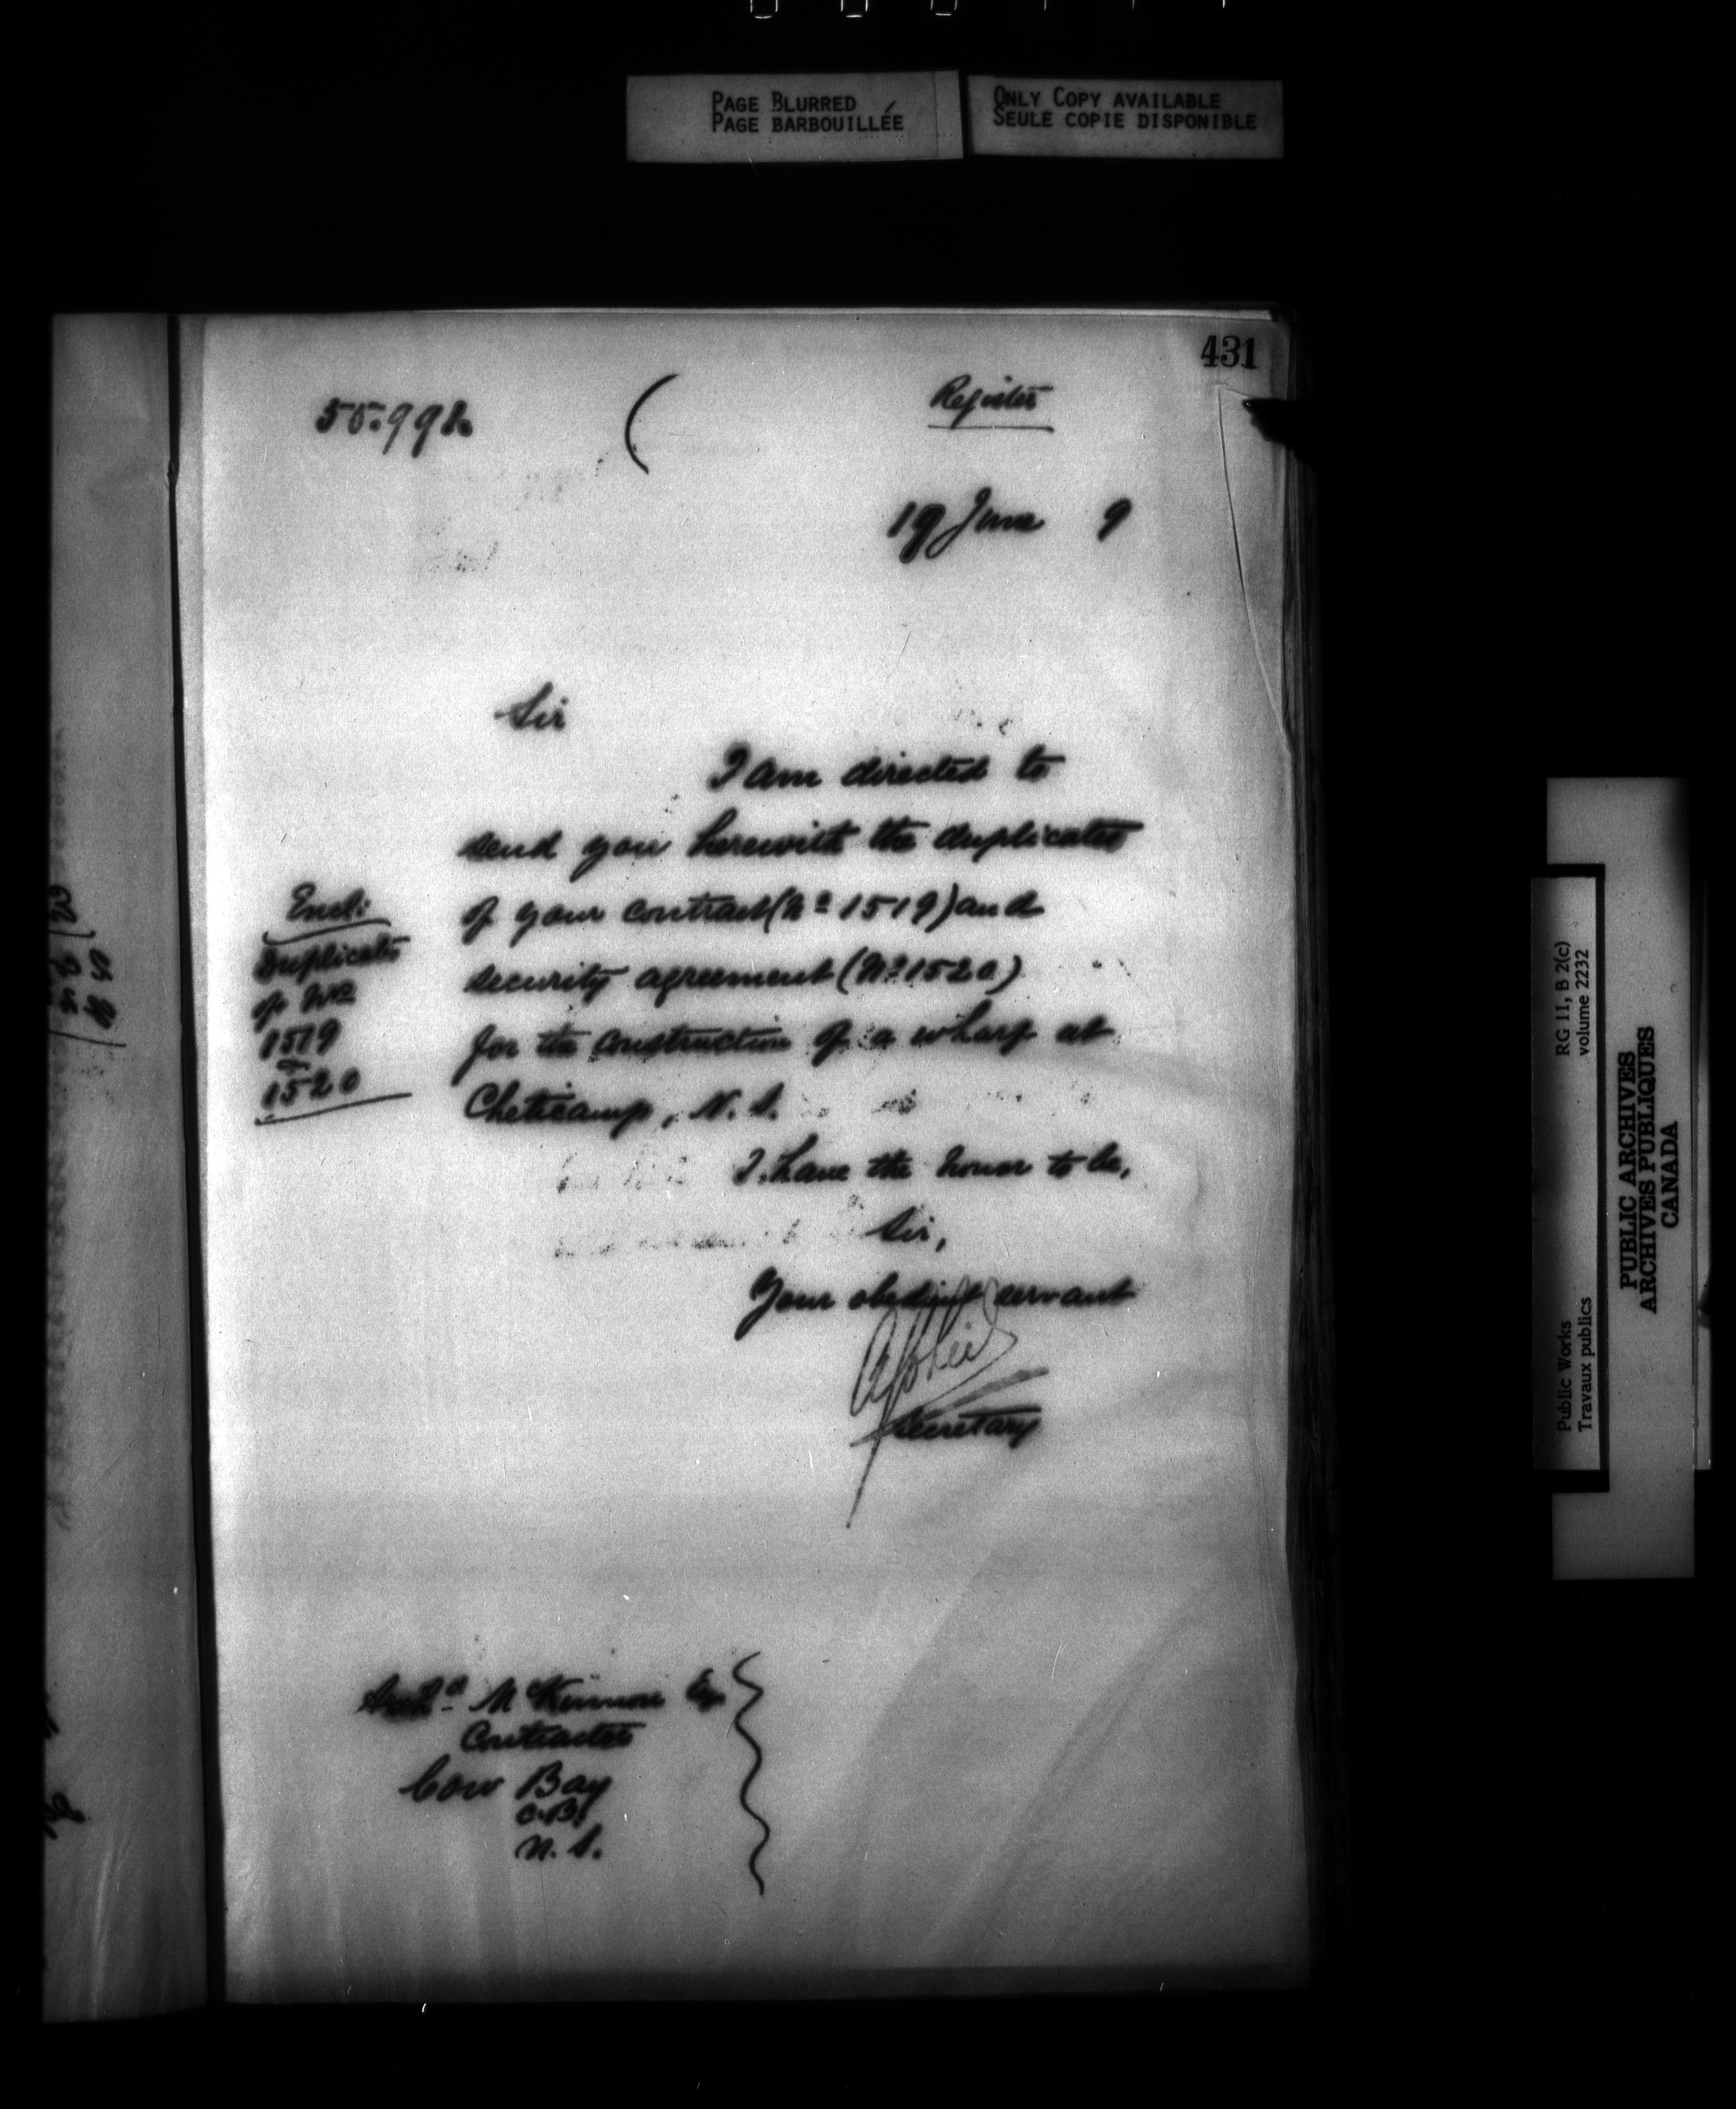 PAGE BLURRED
PAGE BARBOUILLÉE
ONLY COPY AVAILABLE
SEULE COPIE DISPONIBLE
431
55.998.
Register
19 June 9
Sir
I am directed to
send you herewith the duplicates
of your contract (No 1519) and
security agreement (No 1520)
for the construction of a wharf at
Cheticamp, N.S.
Encl:
Duplicates
of Nos
1519
&
1520
I have the honor to be,
Sir,
Your obedient servant
Secretary
McKinnon Esq
Contractor
Cow Bay
C.B.
N.S.
RG 11, B 2(c)
volume 2232
Public Works
Travaux publics
PUBLIC ARCHIVES
ARCHIVES PUBLIQUES
CANADA